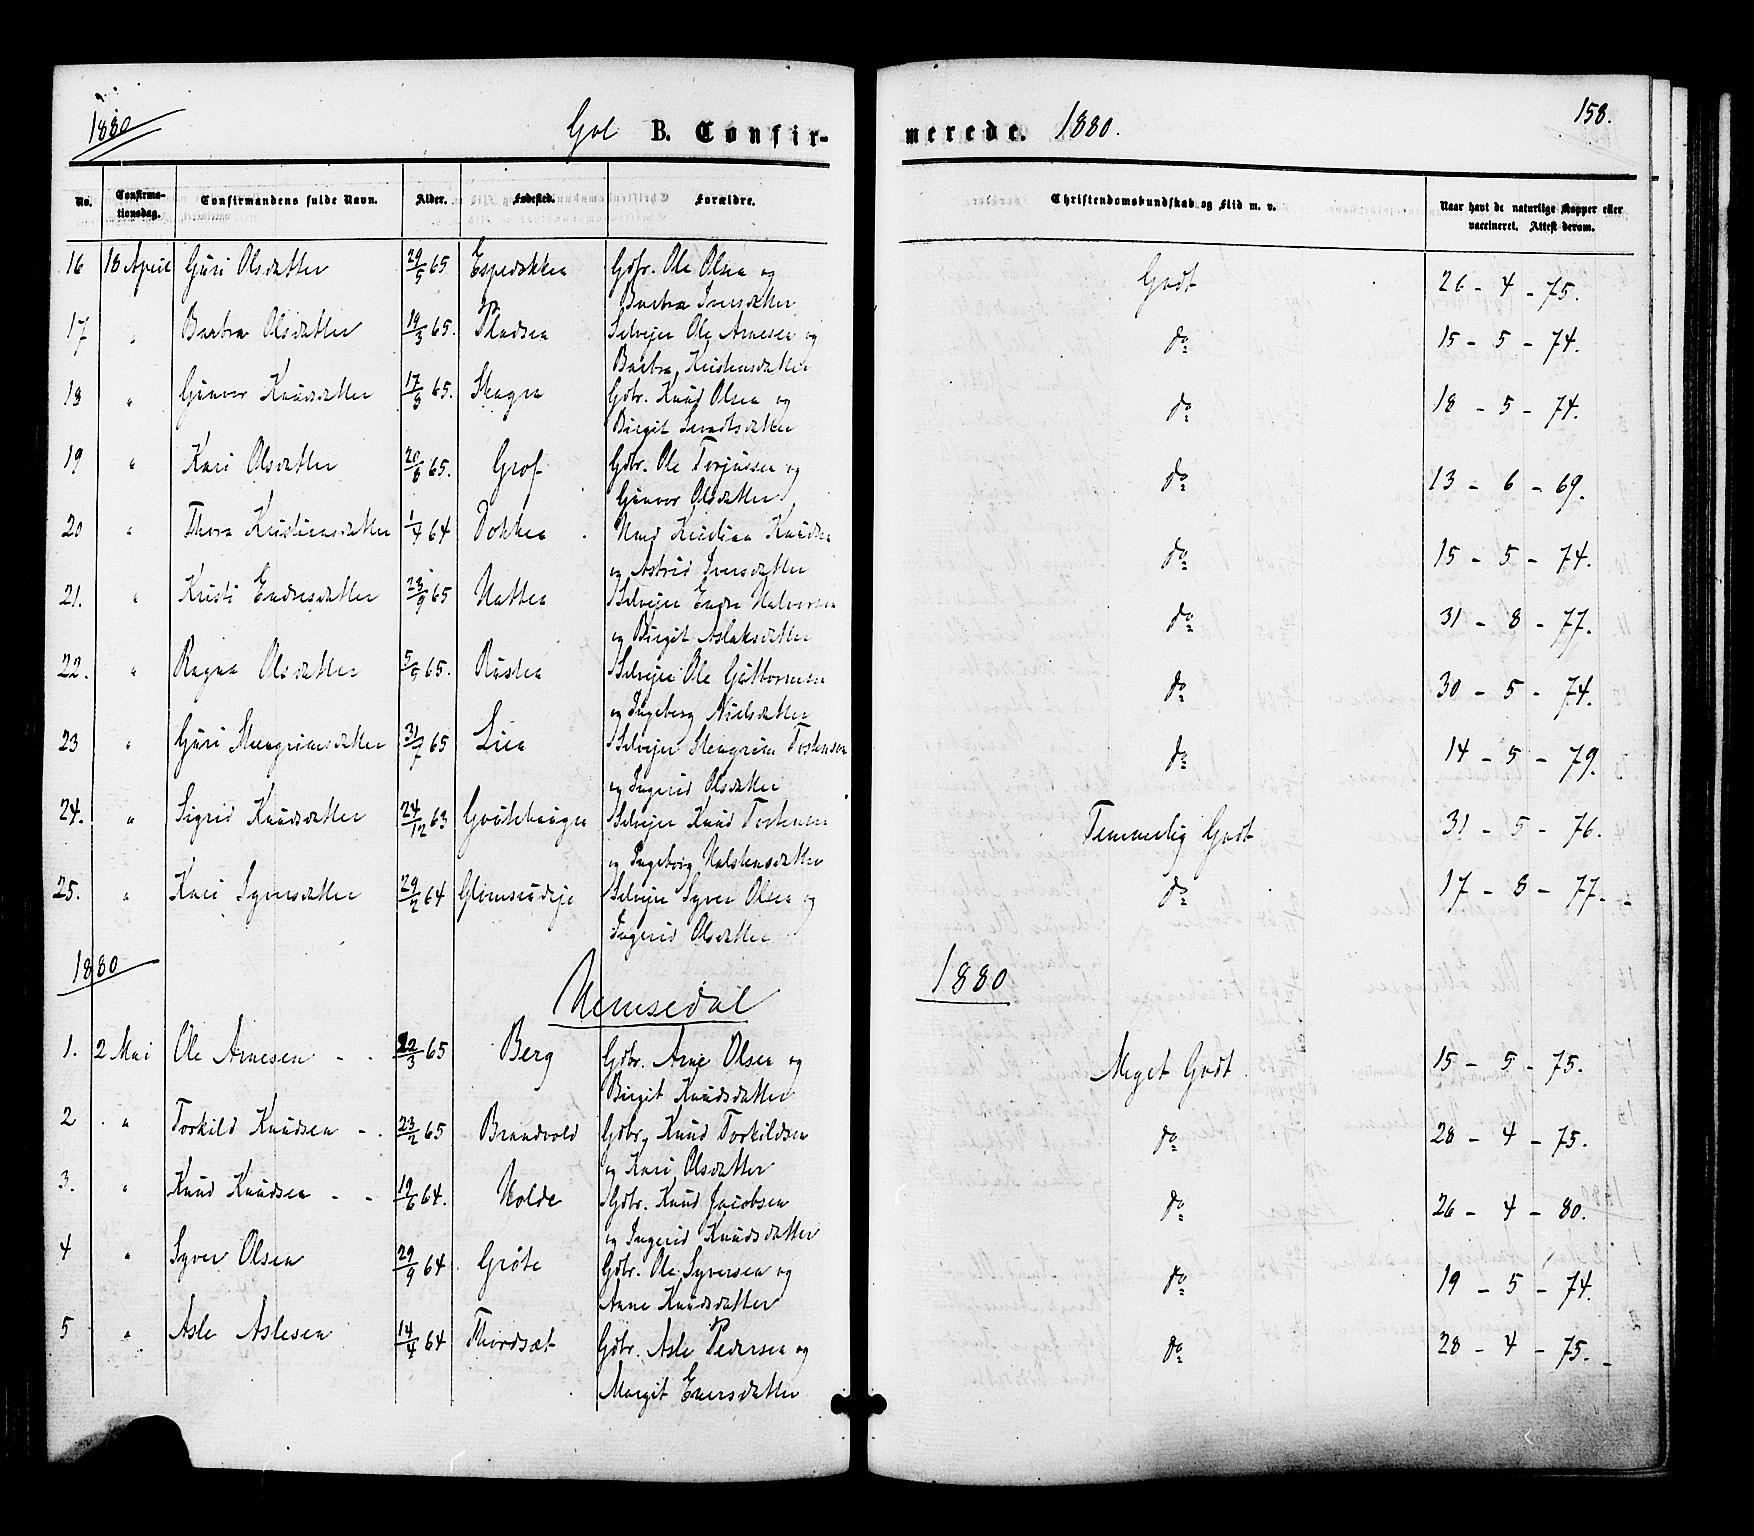 1880
Gol B. Confir-
merede. 1880.
158.
No. Confirma-tionsdag. Confirmandens fulde Navn. Alder. Fødested. Forældre. Christendomskundskab og Flid m. v. Naar havt de naturlige Kopper eller vaccineret. Attest derom.
16 18 April Guri Olsdatter 29/5 65 Espedokken Gdbr. Ole Olsen og Godt 26 - 4 - 75.
Barbra Iversdatter
17 " Barbra Olsdatter 19/3 65. Pladsen Selvejer Ole Arnesen og do 15 - 5 - 74.
Barbra Kristensdatter
18 " Gunvor Knudsdatter 17/3 65. Skogen Gdbr. Knud Olsen og do 18 - 5 - 74.
Birgit
19 " Kari Olsdatter 20/8 65. Grof Gdbr. Ole Torjussen og do 13 - 6 - 69.
Gunvor Olsdatter
20 " Thora Kristiansdatter 1/7 64 Dokken Kristian Knudsen do 15 - 5 - 74.
og Astrid Iversdatter
21. " Kristi Endresdatter 23/9 65 Hatten Selvejer Endre Halvorsen do 31 - 8 - 77.
og Birgit Aslaksdatter
22. " Ragna Olsdatter 5/9 65. Rusten Selvejer Ole Guttormsen do 30 - 5 - 74.
og Ingeborg Nielsdatter
23 " Guri Stengrimsdatter 31/7 65 Lien Selvejer Stengrim Tostensen do 14 - 5 - 79.
og Ingerid Olsdatter
24. " Sigrid Knudsdatter 24/12 63 Selvejer Knud Tostensen Temmelig Godt 31 - 5 - 76.
og Ingeborg Halstensdatter
25. " Kari Syversdatter 29/2 64 Glimsudeje Selvejer Syver Olsen og do 17 - 8 - 77.
Ingerid Olsdatter
1880
Hemsedal
1880
1. 2 Mai Ole Arnesen 22/3 65 Berg Gdbr. Arne Olsen og Meget Godt 15 - 5 - 75.
Birgit Knudsdatter
2 " Torkild Knudsen 23/2 65 Brandvold Gdbr. Knud Torkildsen do 28 - 4 - 75.
og Kari Olsdatter
3. " Knud Knudsen 19/6 64. Holde Gdbr. Knud Jacobsen do 26 - 4 - 80.
og Ingerid Knudsdatter
4 " Syver Olsen 29/9 64 Grøte Gdbr. Ole Syversen og do 19 - 5 - 74.
Anne Knudsdatter
5 " Asle Aslesen 14/4 64 Thordsæt Gdbr. Asle Pedersen og do 28 - 4 - 75.
Margit Enersdatter